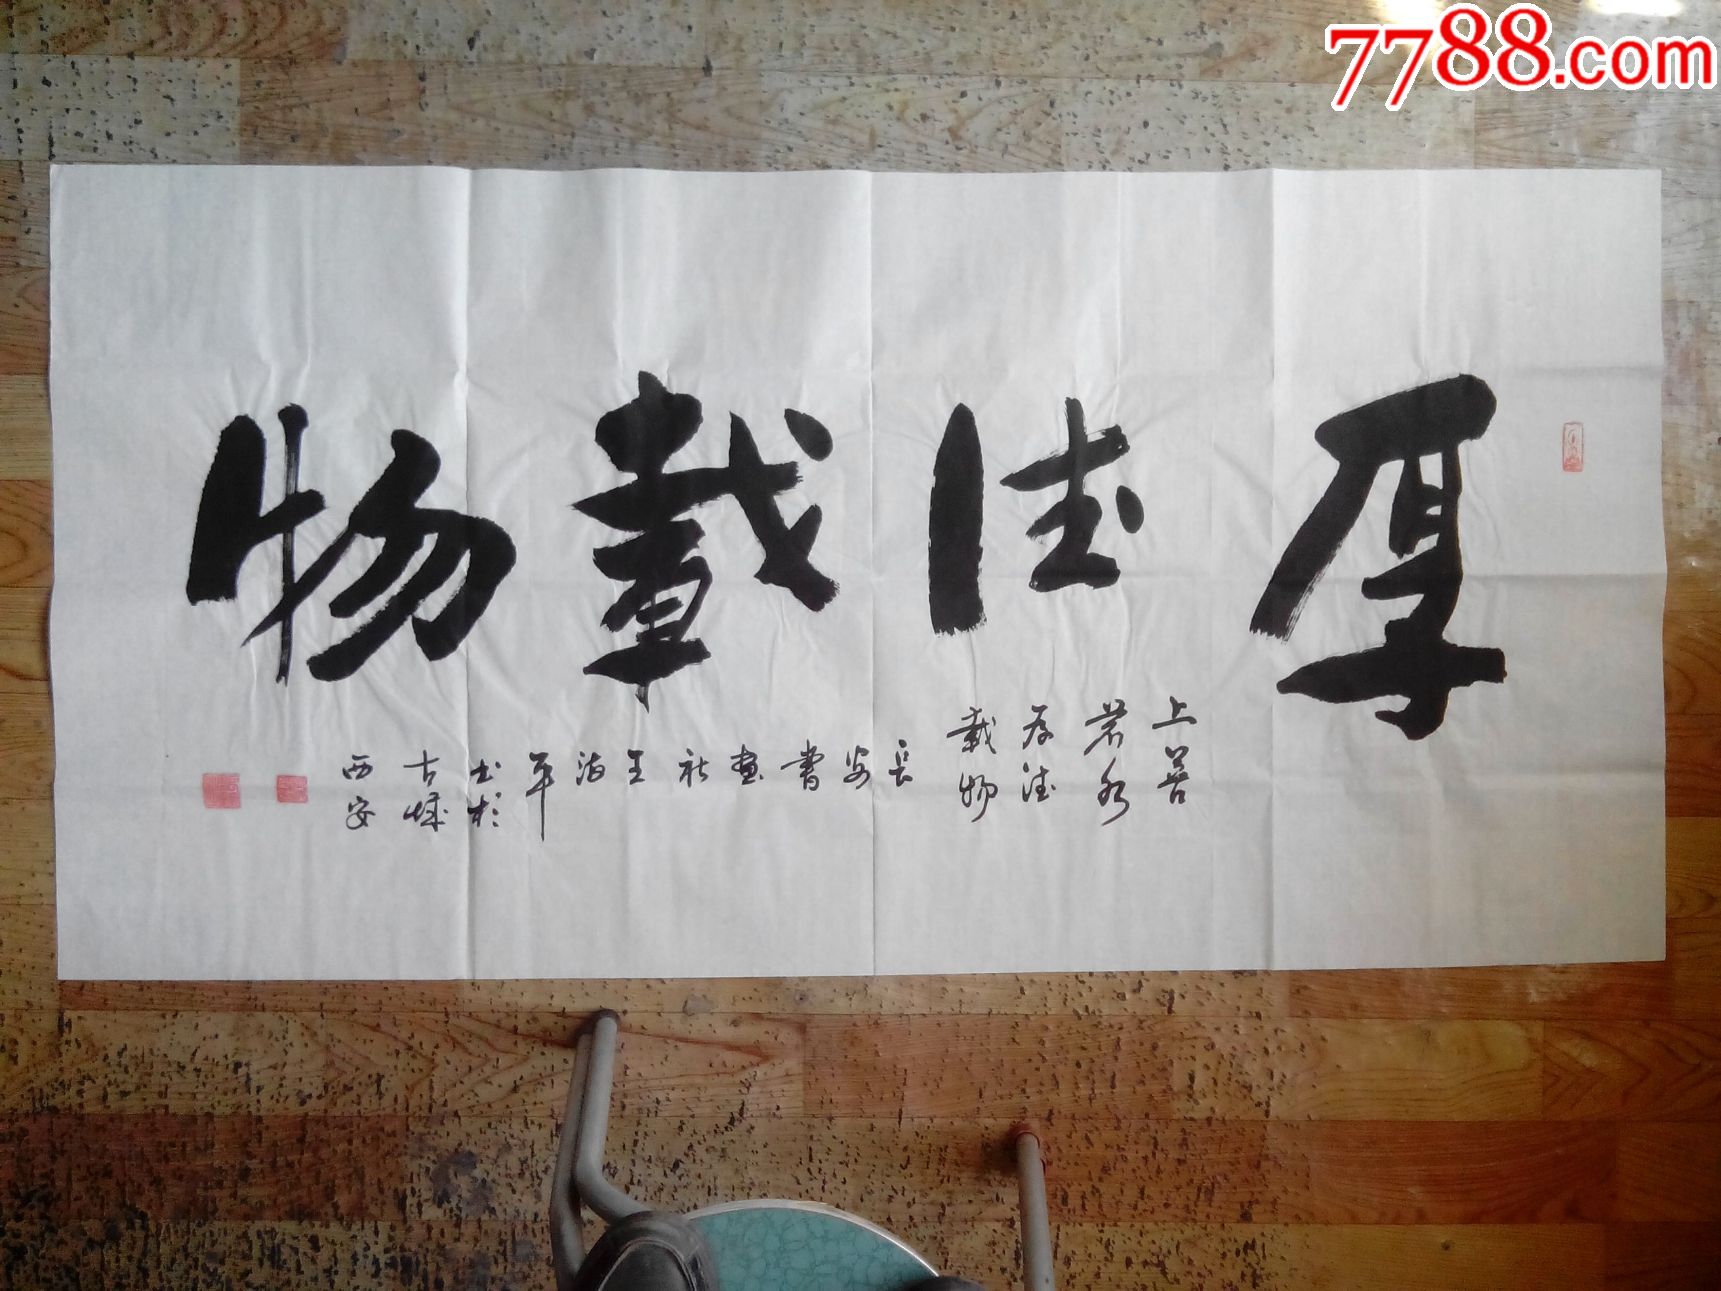 7788.com
厚德载物
上善
若水
厚德
载物
长安书画社王海军
书於
古城
西安